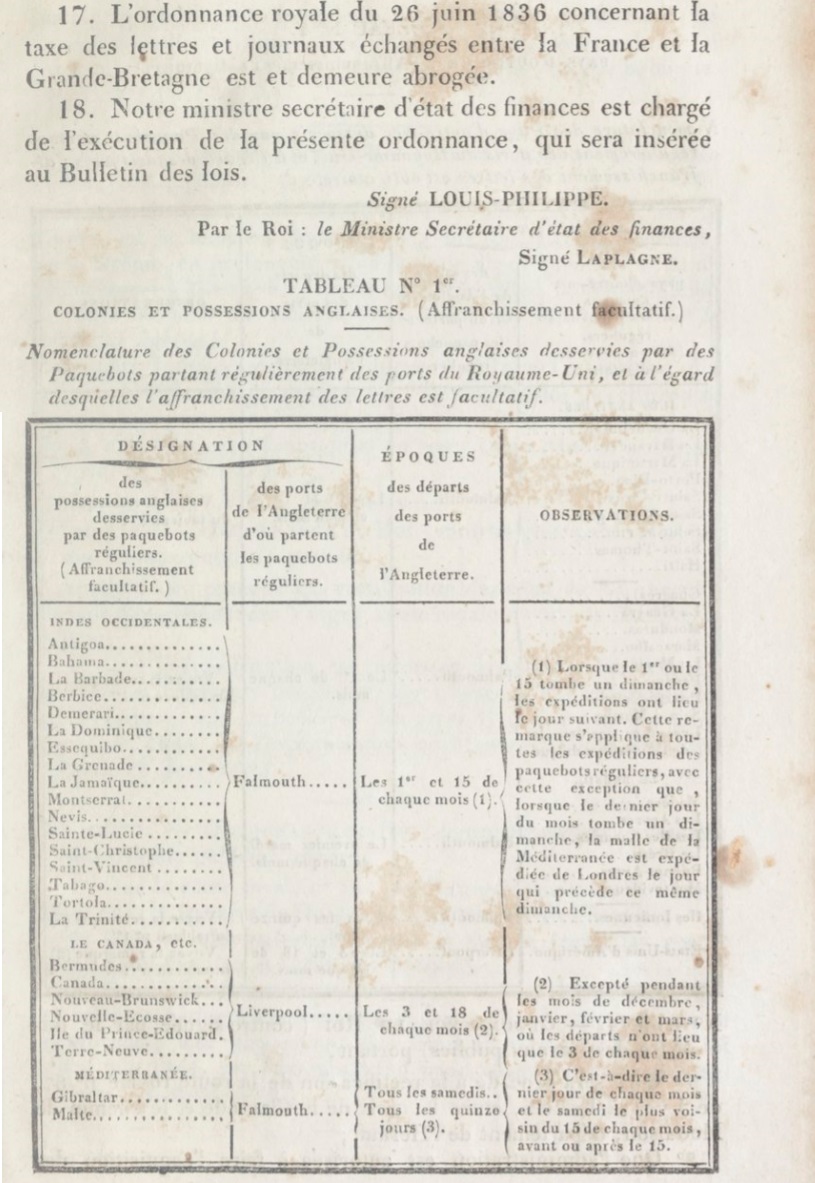 17. L'ordonnance royale du 26 juin 1836 concernant la
taxe des lettres et journaux échangés entre la France et la
Grande-Bretagne est et demeure abrogée.
18. Notre ministre secrétaire d'état des finances est chargé
de l'exécution de la présente ordonnance, qui sera insérée
au Bulletin des lois.
Signé LOUIS-PHILIPPE.
Par le Roi : le Ministre Secrétaire d'état des finances,
Signé LAPLAGNE.
TABLEAU N° 1er.
COLONIES ET POSSESSIONS ANGLAISES. (Affranchissement facultatif.)
Nomenclature des Colonies et Possessions anglaises desservies par des
Paquebots partant régulièrement des ports du Royaume-Uni, et à l'égard
desquelles l'affranchissement des lettres est facultatif.
DÉSIGNATION
des
possessions anglaises
desservies
par des paquebots
réguliers.
(Affranchissement
facultatif.)
des ports
de l'Angleterre
d'où partent
les paquebots
réguliers.
ÉPOQUES
des départs
des ports
de
l'Angleterre.
OBSERVATIONS.
INDES OCCIDENTALES.
Antigoa..............
Bahama..............
La Barbade...........
Berbice..............
Demerari.............
La Dominique........
Essequibo............
La Grenade ..........
La Jamaïque.........
Montserrat...........
Nevis................
Sainte-Lucie .........
Saint-Christophe......
Saint-Vincent ........
Tabago..............
Tortola..............
La Trinité...........
Falmouth.....
Les 1er et 15 de
chaque mois (1).
(1) Lorsque le 1er ou le
15 tombe un dimanche,
les expéditions ont lieu
le jour suivant. Cette re-
marque s'applique à tou-
tes les expéditions des
paquebots réguliers, avec
cette exception que,
lorsque le dernier jour
du mois tombe un di-
manche, la malle de la
Méditerranée est expé-
diée de Londres le jour
qui précède ce même
dimanche.
LE CANADA, etc.
Bermudes............
Canada..............
Nouveau-Brunswick...
Nouvelle-Ecosse......
Ile du Prince-Edouard.
Terre-Neuve.........
Liverpool.....
Les 3 et 18 de
chaque mois (2).
(2) Excepté pendant
les mois de décembre,
janvier, février et mars,
où les départs n'ont lieu
que le 3 de chaque mois.
MÉDITERRANÉE.
Gibraltar............
Malte................
Falmouth.....
Tous les samedis..
Tous les quinze
jours (3).
(3) C'est-à-dire le der-
nier jour de chaque mois
et le samedi le plus voi-
sin du 15 de chaque mois,
avant ou après le 15.